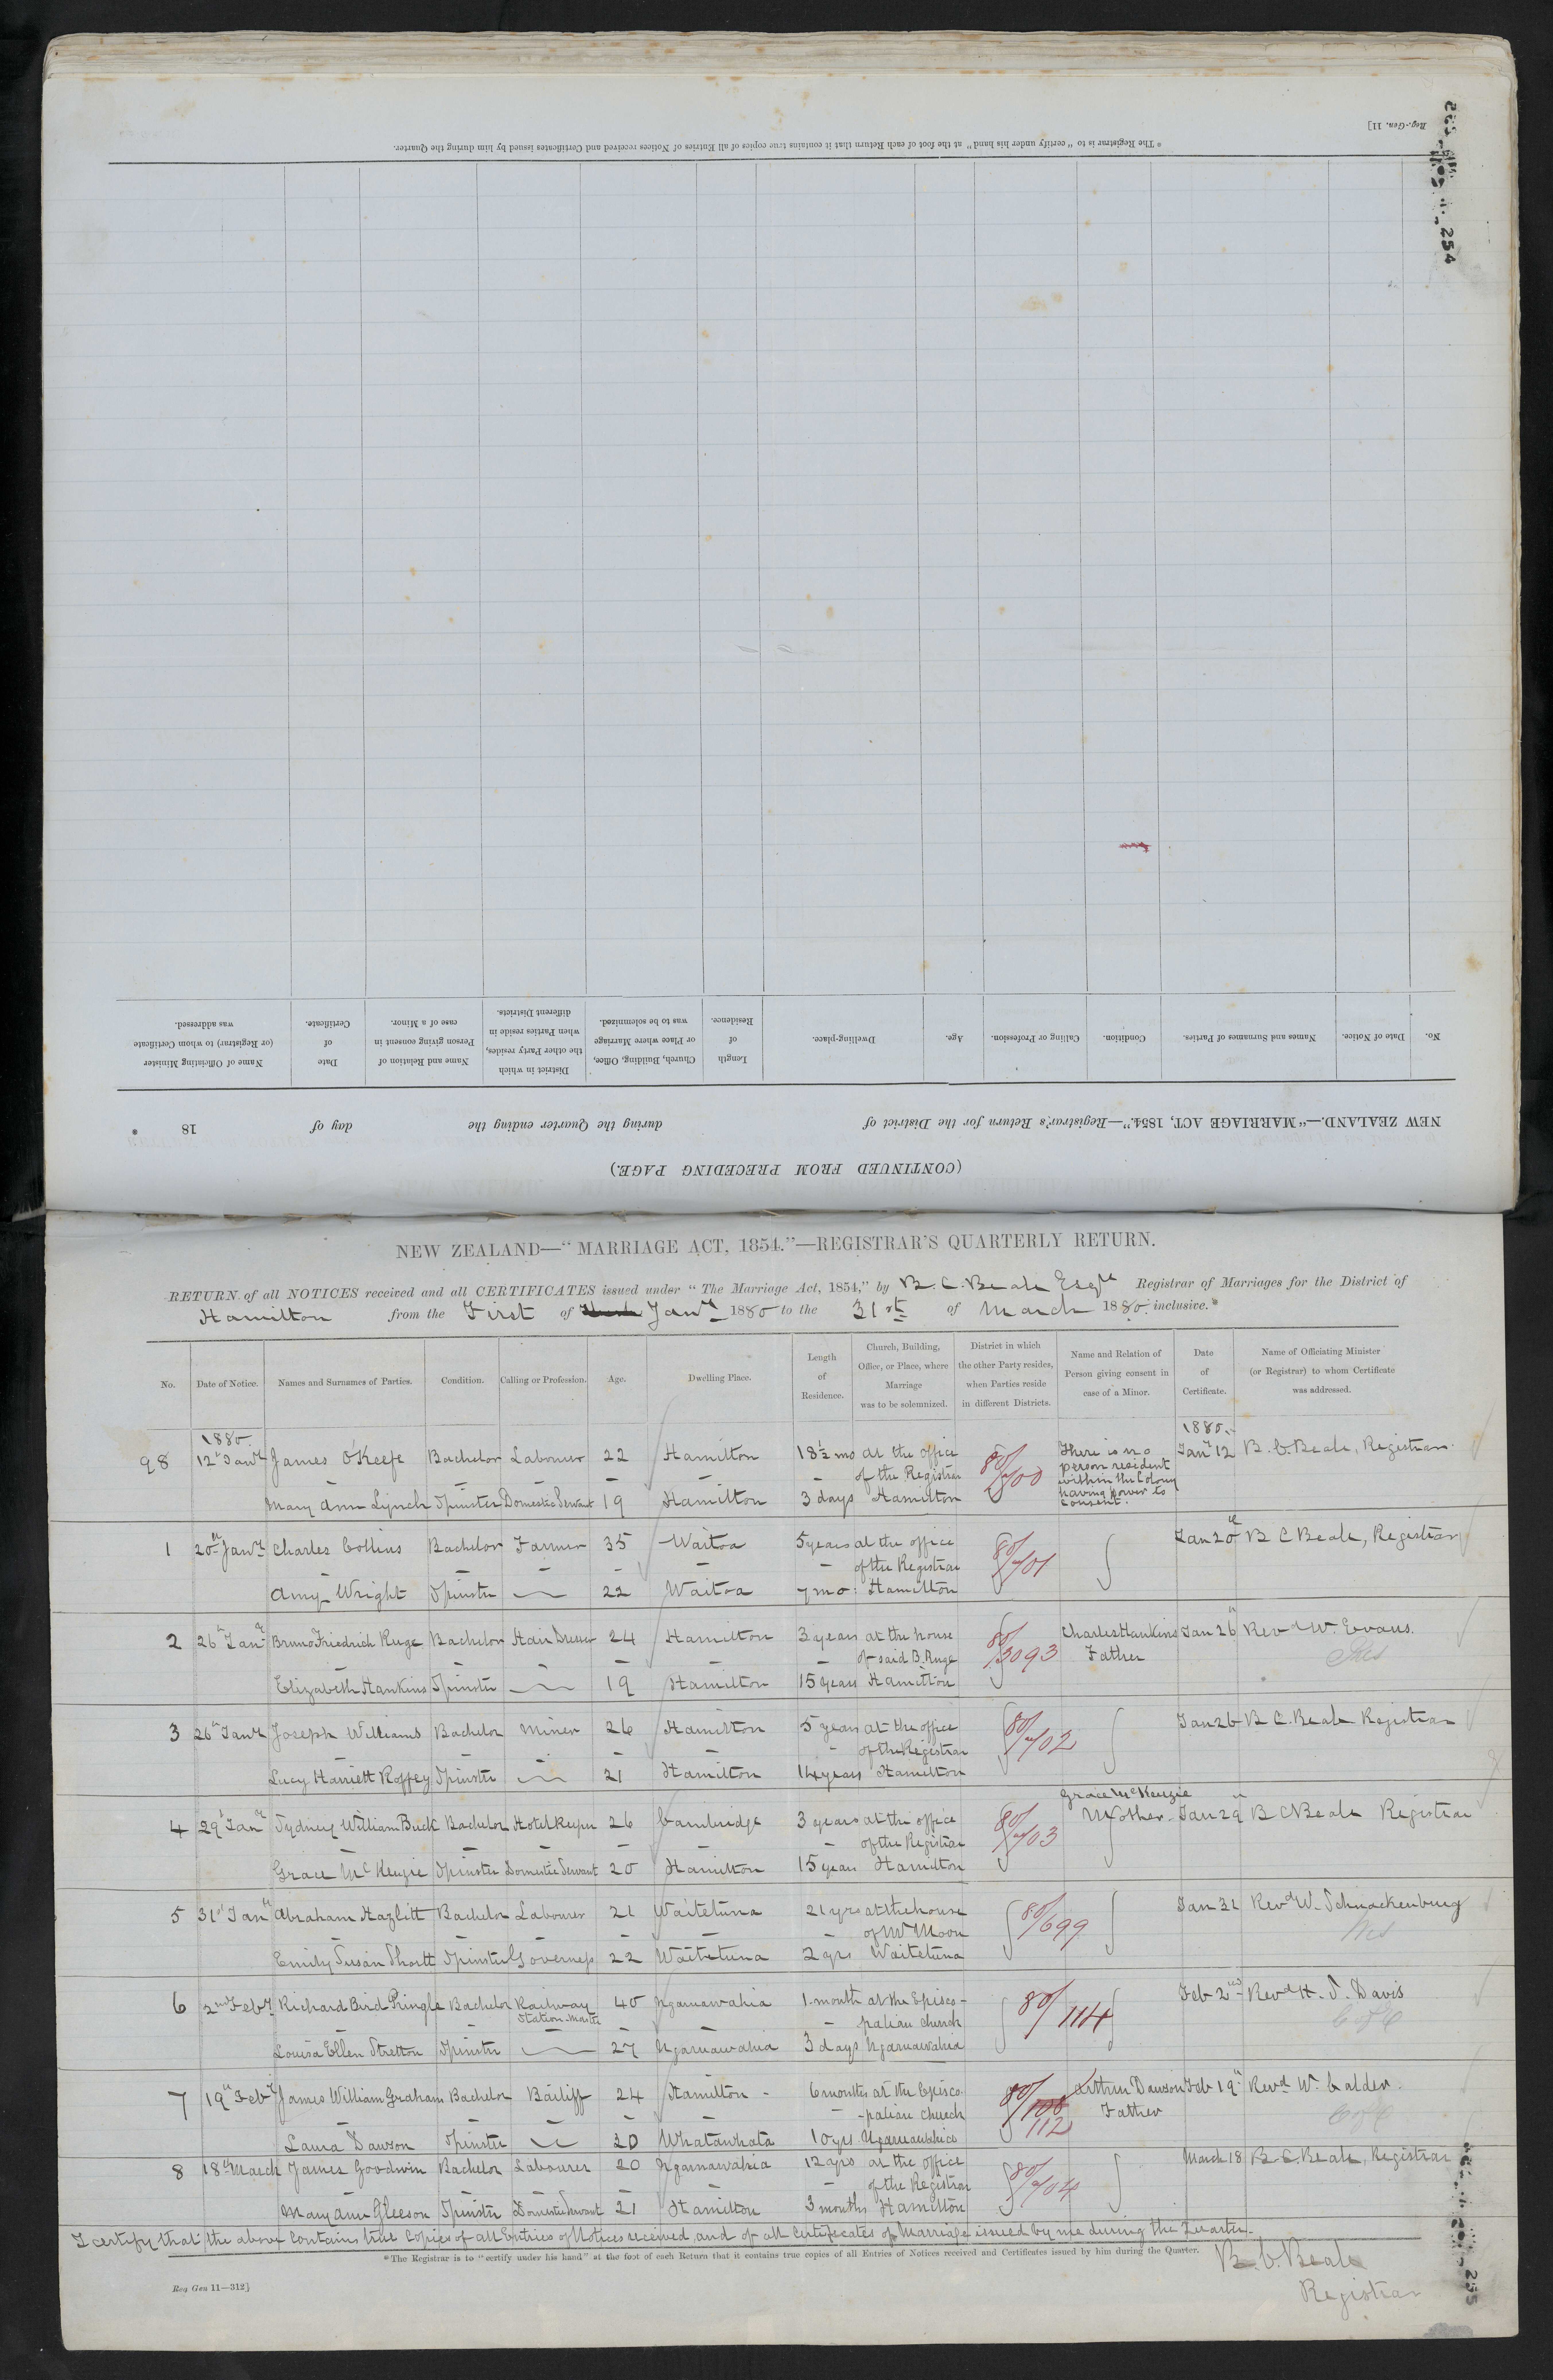 Reg.-Gen. 11]
254
* The Registrar is to "certify under his hand" at the foot of each Return that it contains true copies of all Entries of Notices received and Certificates issued by him during the Quarter.
(CONTINUED FROM PRECEDING PAGE.)
NEW ZEALAND.—"MARRIAGE ACT, 1854."—Registrar's Return for the District of during the Quarter ending the day of 18 .
No. Date of Notice. Names and Surnames of Parties. Condition. Calling or Profession. Age. Dwelling-place. Length of Residence. Church, Building, Office, or Place where Marriage was to be solemnized. District in which the other Party resides, when Parties reside in different Districts. Name and Relation of Person giving consent in case of a Minor. Date of Certificate. Name of Officiating Minister (or Registrar) to whom Certificate was addressed.
NEW ZEALAND—"MARRIAGE ACT, 1854."—REGISTRAR'S QUARTERLY RETURN.
RETURN of all NOTICES received and all CERTIFICATES issued under "The Marriage Act, 1854," by B. C. Beale Esqre Registrar of Marriages for the District of
Hamilton from the First of Jany 1880 to the 31st of March 1880. inclusive.*
No. Date of Notice. Names and Surnames of Parties. Condition. Calling or Profession. Age. Dwelling Place. Length of Residence. Church, Building, Office, or Place, where Marriage was to be solemnized. District in which the other Party resides, when Parties reside in different Districts. Name and Relation of Person giving consent in case of a Minor. Date of Certificate. Name of Officiating Minister (or Registrar) to whom Certificate was addressed.
1880 1880
98 12th Jany James O'Keefe Bachelor Labourer 22 Hamilton 18½ mo at the office 80/700 There is no person resident within the Colony having power to consent. Jany 12 B. C. Beale, Registrar
of the Registrar
Mary Ann Lynch Spinster Domestic Servant 19 Hamilton 3 days Hamilton
1 20th Jany Charles Collins Bachelor Farmer 35 Waitoa 5 years at the office 80/701 Jan 20th B C Beale, Registrar
of the Registrar
Amy Wright Spinster 22 Waitoa 7 mo: Hamilton
2 26th Jany Bruno Friedrich Ruge Bachelor Hair Dresser 24 Hamilton 3 years at the house 80/3093 Charles Hankins Father Jan 26th Revd W. Evans.
of said B. Ruge
Elizabeth Hankins Spinster 19 Hamilton 15 years Hamilton
3 26th Jany Joseph Williams Bachelor Miner 26 Hamilton 5 years at the office 80/702 Jan 26 B C. Beale Registrar
of the Registrar
Lucy Harriett Roffey Spinster 21 Hamilton 14 years Hamilton
4 29th Jany Sydney William Buck Bachelor Hotel Keeper 26 Cambridge 3 years at the office 80/703 Grace McKenzie Mother Jan 29th B C Beale Registrar
of the Registrar
Grace McKenzie Spinster Domestic Servant 20 Hamilton 15 years Hamilton
5 31st Jany Abraham Hazlitt Bachelor Labourer 21 Waitetuna 21 yrs at the house 80/699 Jan 31 Revd W. Schnackenburg
of Mr Moon Wes
Emily Susan Shortt Spinster Governess 22 Waitetuna 2 yrs Waitetuna
6 2nd Feby Richard Bird Pringle Bachelor Railway Station Master 40 Ngaruawahia 1 month at the Episco- 80/114 Feb 2nd Revd H. S. Davis
palian Church C of E
Louisa Ellen Stretton Spinster 27 Ngaruawahia 3 days Ngaruawahia
7 19th Feby James William Graham Bachelor Bailiff 24 Hamilton 6 months at the Episco- 80/112 Arthur Dawson Father Feb 19th Revd W. Calder.
-palian Church C of E
Laura Dawson Spinster 20 Whatawhata 10 yrs Ngaruawahia
8 18th March James Goodwin Bachelor Labourer 20 Ngaruawahia 12 yrs at the office 80/704 March 18 B. C. Beale, Registrar
of the Registrar
Mary Ann Gleeson Spinster Domestic Servant 21 Hamilton 3 months Hamilton
I certify that the above contains true copies of all Entries of Notices received, and of all Certificates of Marriage issued by me during the Quarter.
* The Registrar is to "certify under his hand" at the foot of each Return that it contains true copies of all Entries of Notices received and Certificates issued by him during the Quarter.
B. C. Beale
Registrar
Reg Gen 11—312]
255